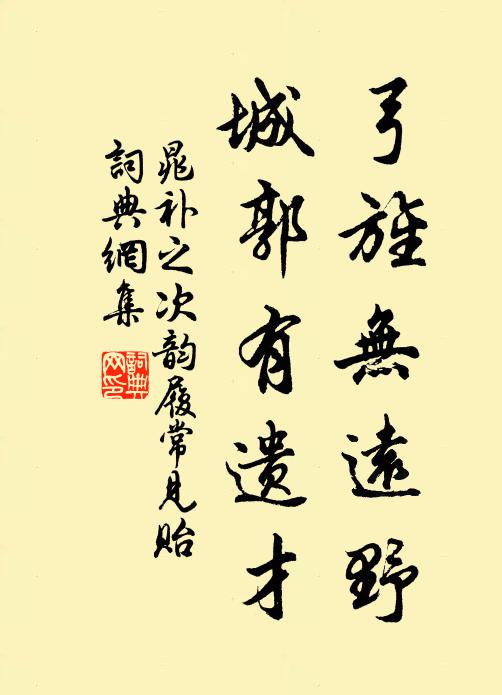 弓旌無遠野
城郭有遺才
晁补之次韵履常見貽
詞典網集
詞典网印